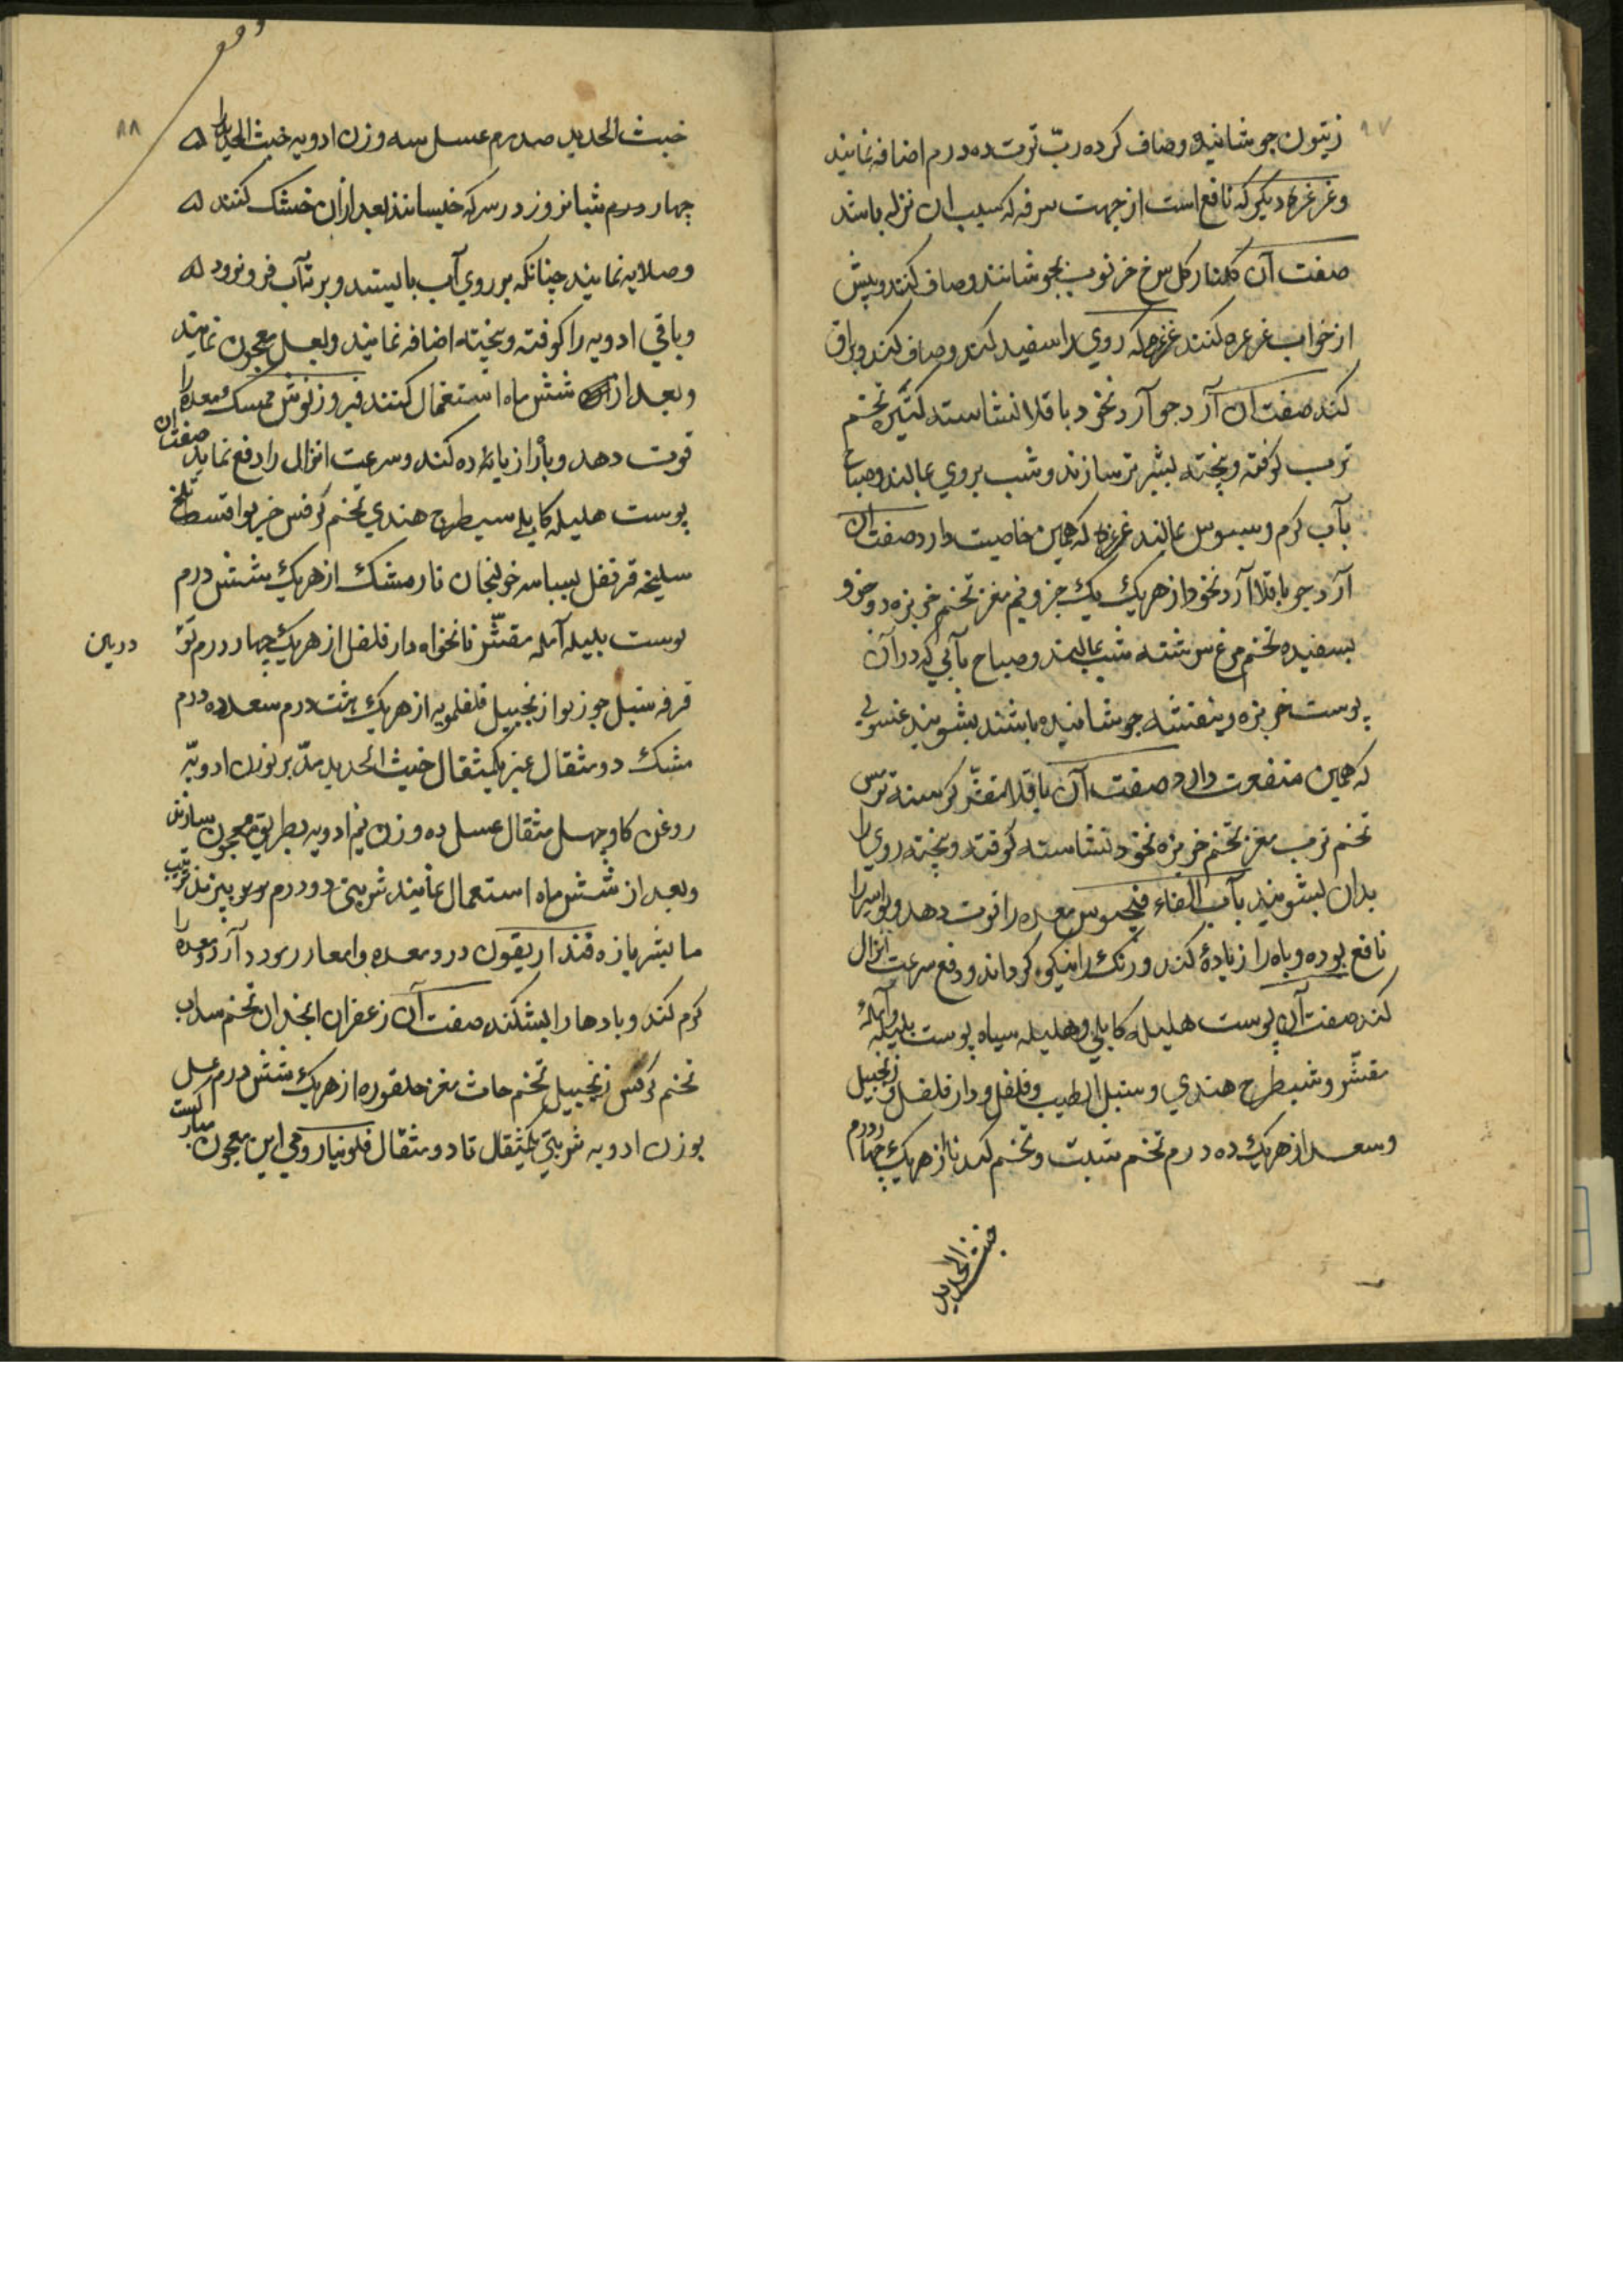 زیتون جوشانیده وصاف کرده ربّ توت ده درم اضافه نمایند
وغرغرهٔ دیکر که نافع است از جهت سرفه که سبب ان نزله باشد
صفت آن کلنار کل سرخ خرنوب بجوشانند وصاف کنند وپیش
از خواب غرغره کنند غمره که روي را سفید کند وصاف کند وبراق
کند صفت ان آرد جو آرد نخود باقلا نشاسته کثیره تخم
ترب کوفته وبیخته بشیر تر سازند وشب بروي بمالند وصباح
بآب کرم وسبوس بمالند غمره که همین خاصیت دارد صفت ان
آرد جو باقلا آرد نخود از هریك یك جزو نیم مغز تخم خربزه دو جزو
بسفیده تخم مرغ سرشته شب بمالند وصباح بآبي که در آن
پوست خربزه وبنفشه جوشانیده باشند بشویند غسولي
که همین منفعت دارد صفت آن باقلا مقشّر کرسنه ترمس
تخم ترب مغز تخم خربزه نخود نشاسته کوفته وبیخته روي را
بدان بشویند بآب الفاء فنجنوش معده را قوت دهد وبواسیر را
نافع بوده وباه را زیاده کند ورنك را نیکو کرداند ودفع سرعت انزال
کند صفت آن پوست هلیله کابلي وهلیله سیاه پوست بلیله وآمله
مقشّر وشیطرج هندي وسنبل الطیب وفلفل ودار فلفل وزنجبیل
وسعد از هریك ده درم تخم شبت وتخم کندنا از هریك چهار درم
خبث الحدید
۸۸
خبث الحدید صد درم عسل سه وزن ادویه خبث الحدید را
چهارده درم شبانروز در سرکه خیسانند بعد ازان خشك کنند
وصلایه نمایند چنانکه بر روي آب بایستد وبر ته آب فرو نرود
وباقي ادویه را کوفته وبیخته اضافه نمایند وبعسل معجون نمایند
وبعد از شش ماه استعمال کنند فیروزنوش ممسك معده را
قوت دهد وباه را زیاده کند وسرعت انزال را دفع نماید صفت ان
پوست هلیله کابلي سیطرج هندي تخم کرفس خیربوا قسط تلخ
سلیخه قرنفل بسباسه خولنجان نارمشك از هریك شش درم
پوست بلیله آمله مقشّر نانخواه دار فلفل از هریك چهار درم
قرفه سنبل جوزبوا زنجبیل فلفلمویه از هریك هشت درم سعد ده درم
مشك دو مثقال عنبر یکمثقال خبث الحدید مدّبر بوزن ادویّه
روغن کاو چهل مثقال عسل ده وزن نیم ادویه بطریق معجون سازند
وبعد از شش ماه استعمال نمایند شربتی دو درم
ما بشیر تازه قنداریقون درد معده وامعا را آرد معده را
کرم کند وبادها را بشکند صفت آن زعفران انجدان تخم سداب
تخم کرفس زنجبیل تخم مغز از هریك شش درم عسل
بوزن ادویه شربتي یکمثقال تا دو مثقال فلونیا رومي این معجون مبارکست